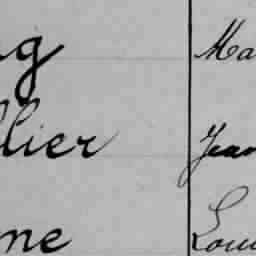 g Ma
llier Jean
ne Loui